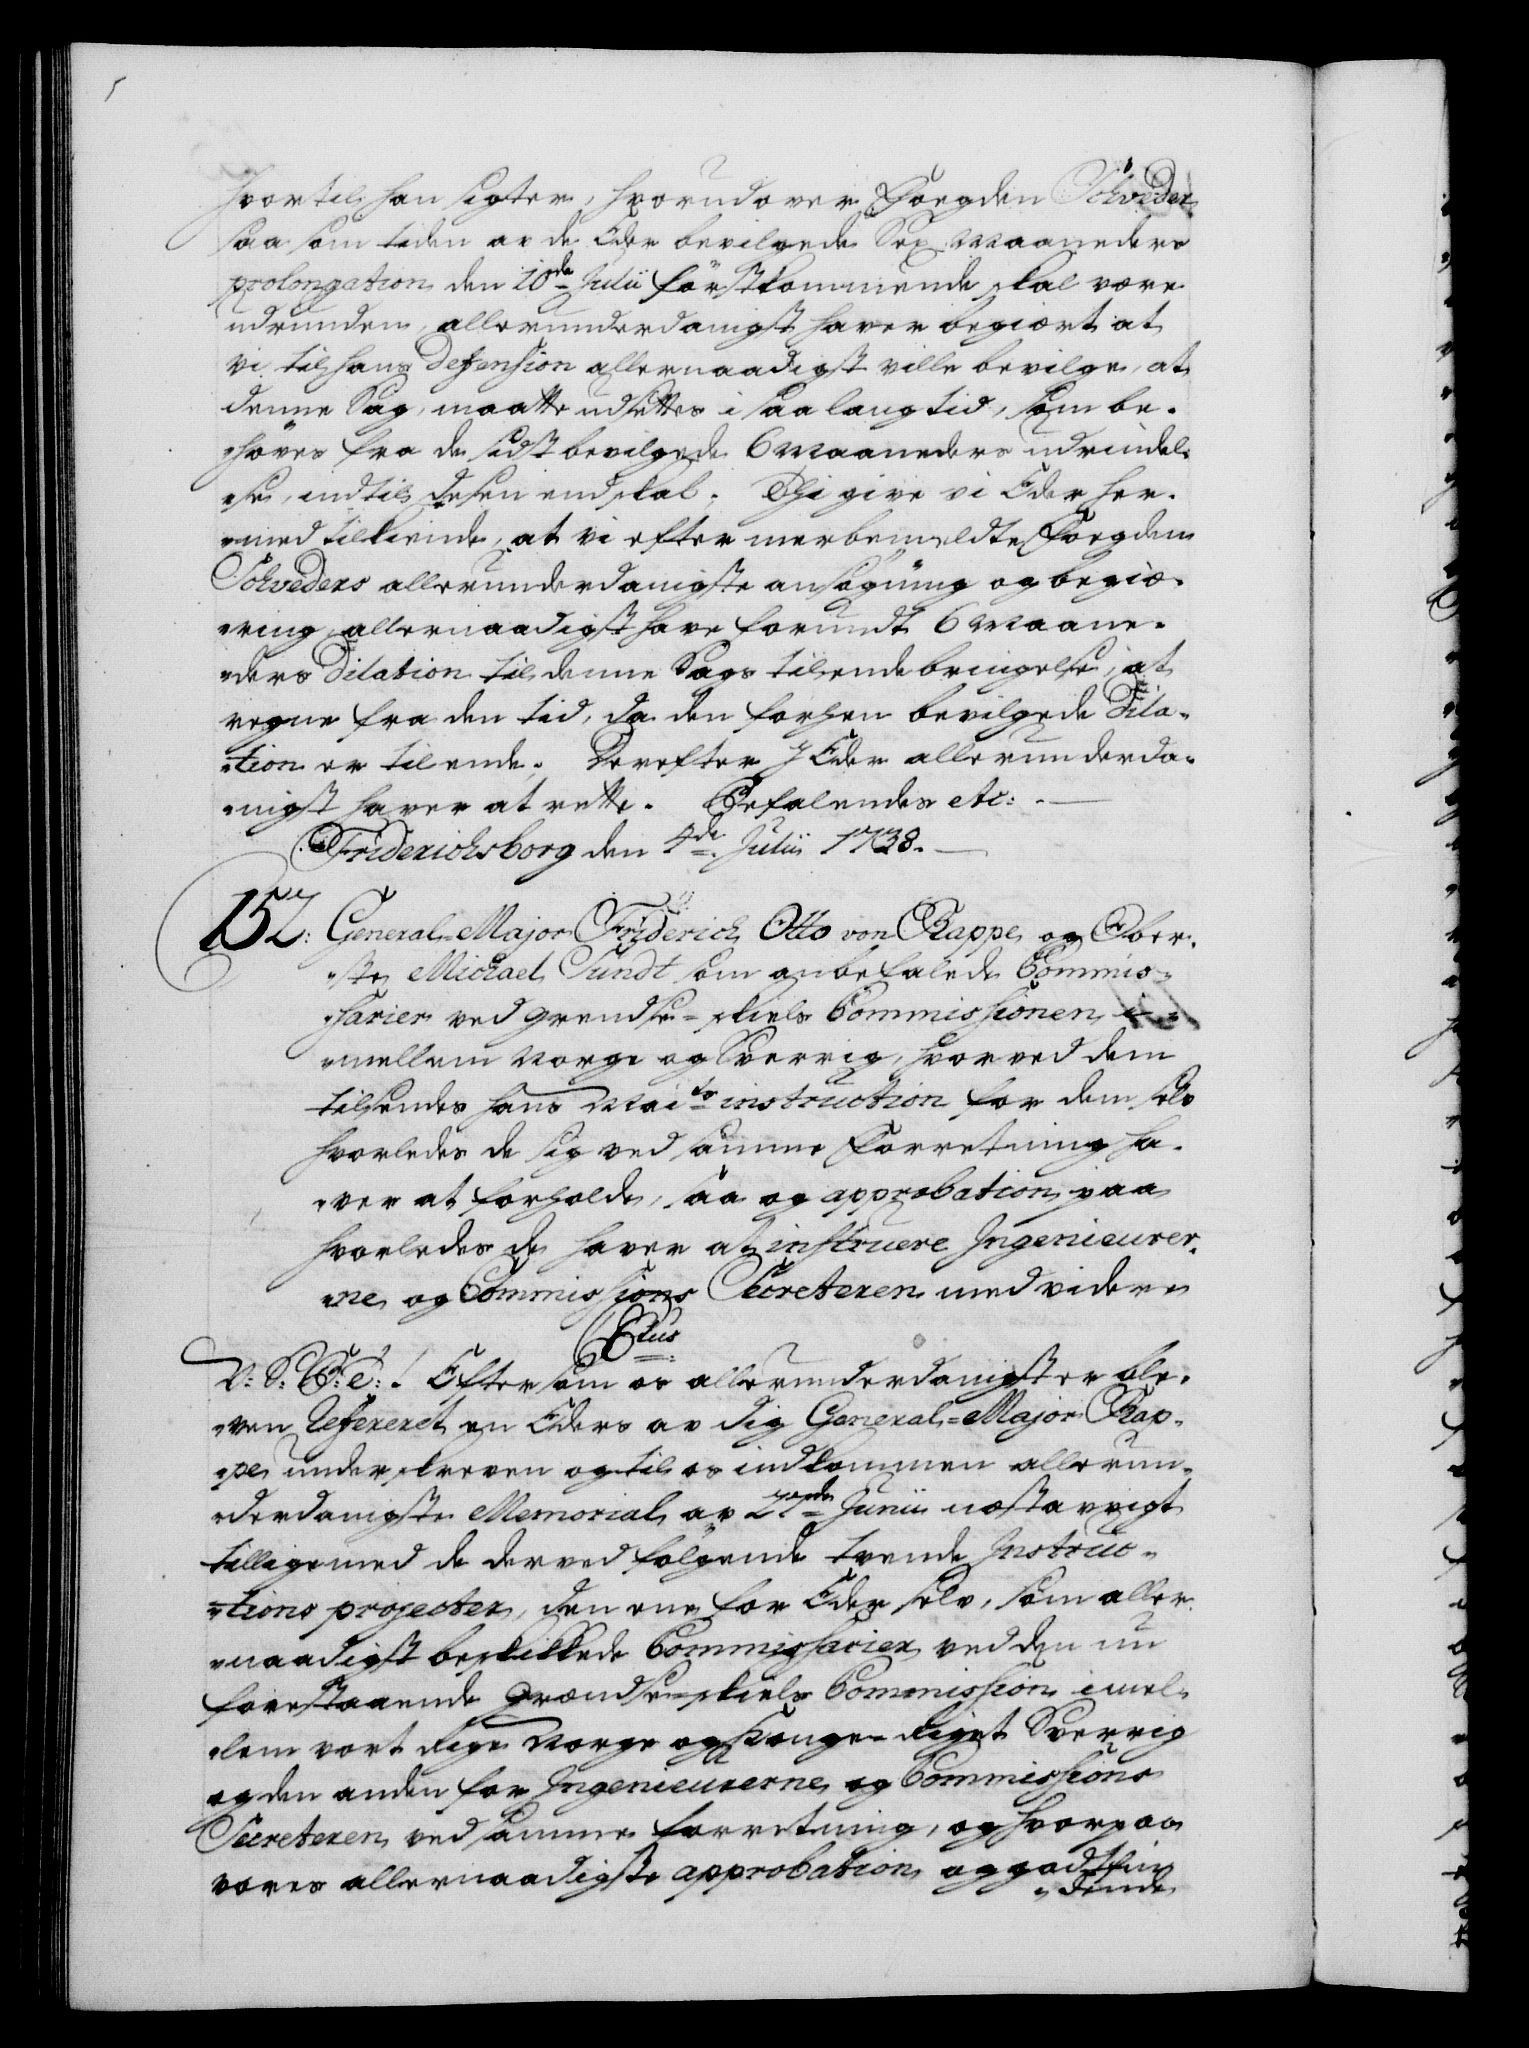 hvortil han sigter, hvorudover Foegden Schweder
saa som tiden av de Eder bevilgede Sex Maaneders
prolongation den 10de Julii förstkommende skal være
udrunden, allerunderdanigst haver begiært at
vi til hans Defension allernaadigst ville bevilge, at
denne Sag, maatte udsættes i saa lang tid, som be-
„höves fra de sidst bevilgede 6 Maaneders udrindel-
„se, indtil dend skal. Thi give vi Eder her-
„med tilkiende, at vi efter merbemeldte Foegden
Schveders allerunderdanigste ansögning og begiæ-
„ring allernaadigst have forundt 6 Maane-
„ders Dilation til denne Sags tilendebringelse, at
regne fra den tid, da den forhen bevilgede Dila-
„tion er til ende. Derefter I Eder allerunderda-
„nigst haver at rette. Befalendes etc:
Friderichsborg den 4de Julii 1738.
152: General-Major Friderich Otto von Rappe og Ober-
„ste Michael Sundt som anbefalede Commis-
„sarier ved grendse-skiels Commissionen i-
„mellem Norge og Sverrig, hvorved dem
tilsendes hans Maits instruction for dem selv
hvorledes de sig ved samme Forretning ha-
„ver at forholde, saa og approbation paa
hvorledes de haver at instruere Ingenieurer-
„ne og Commissions Secreteren med videre
V: S: G: T: ! Eftersom os allerunderdanigst er ble-
„ven Refereret en Eders av dig General-Major Rap-
„pe underskreven og til os indkommen allerun-
„derdanigste Memorial av 27de Junii næstavvigt
tilligemed de derved fölgende tvende Instruc-
„tions projecter, den ene for Eder selv, som aller-
„naadigst beskikkede Commissarier ved den nu
forestaaende Grændse-skiels Commission imel-
„lem vort Rige Norge og Konge-Riget Sverrig
og den anden for Ingenieurerne og Commissions
Secreteren ved samme forretning, og hvorpaa
vores allernaadigste approbation og godtfin-
„dende